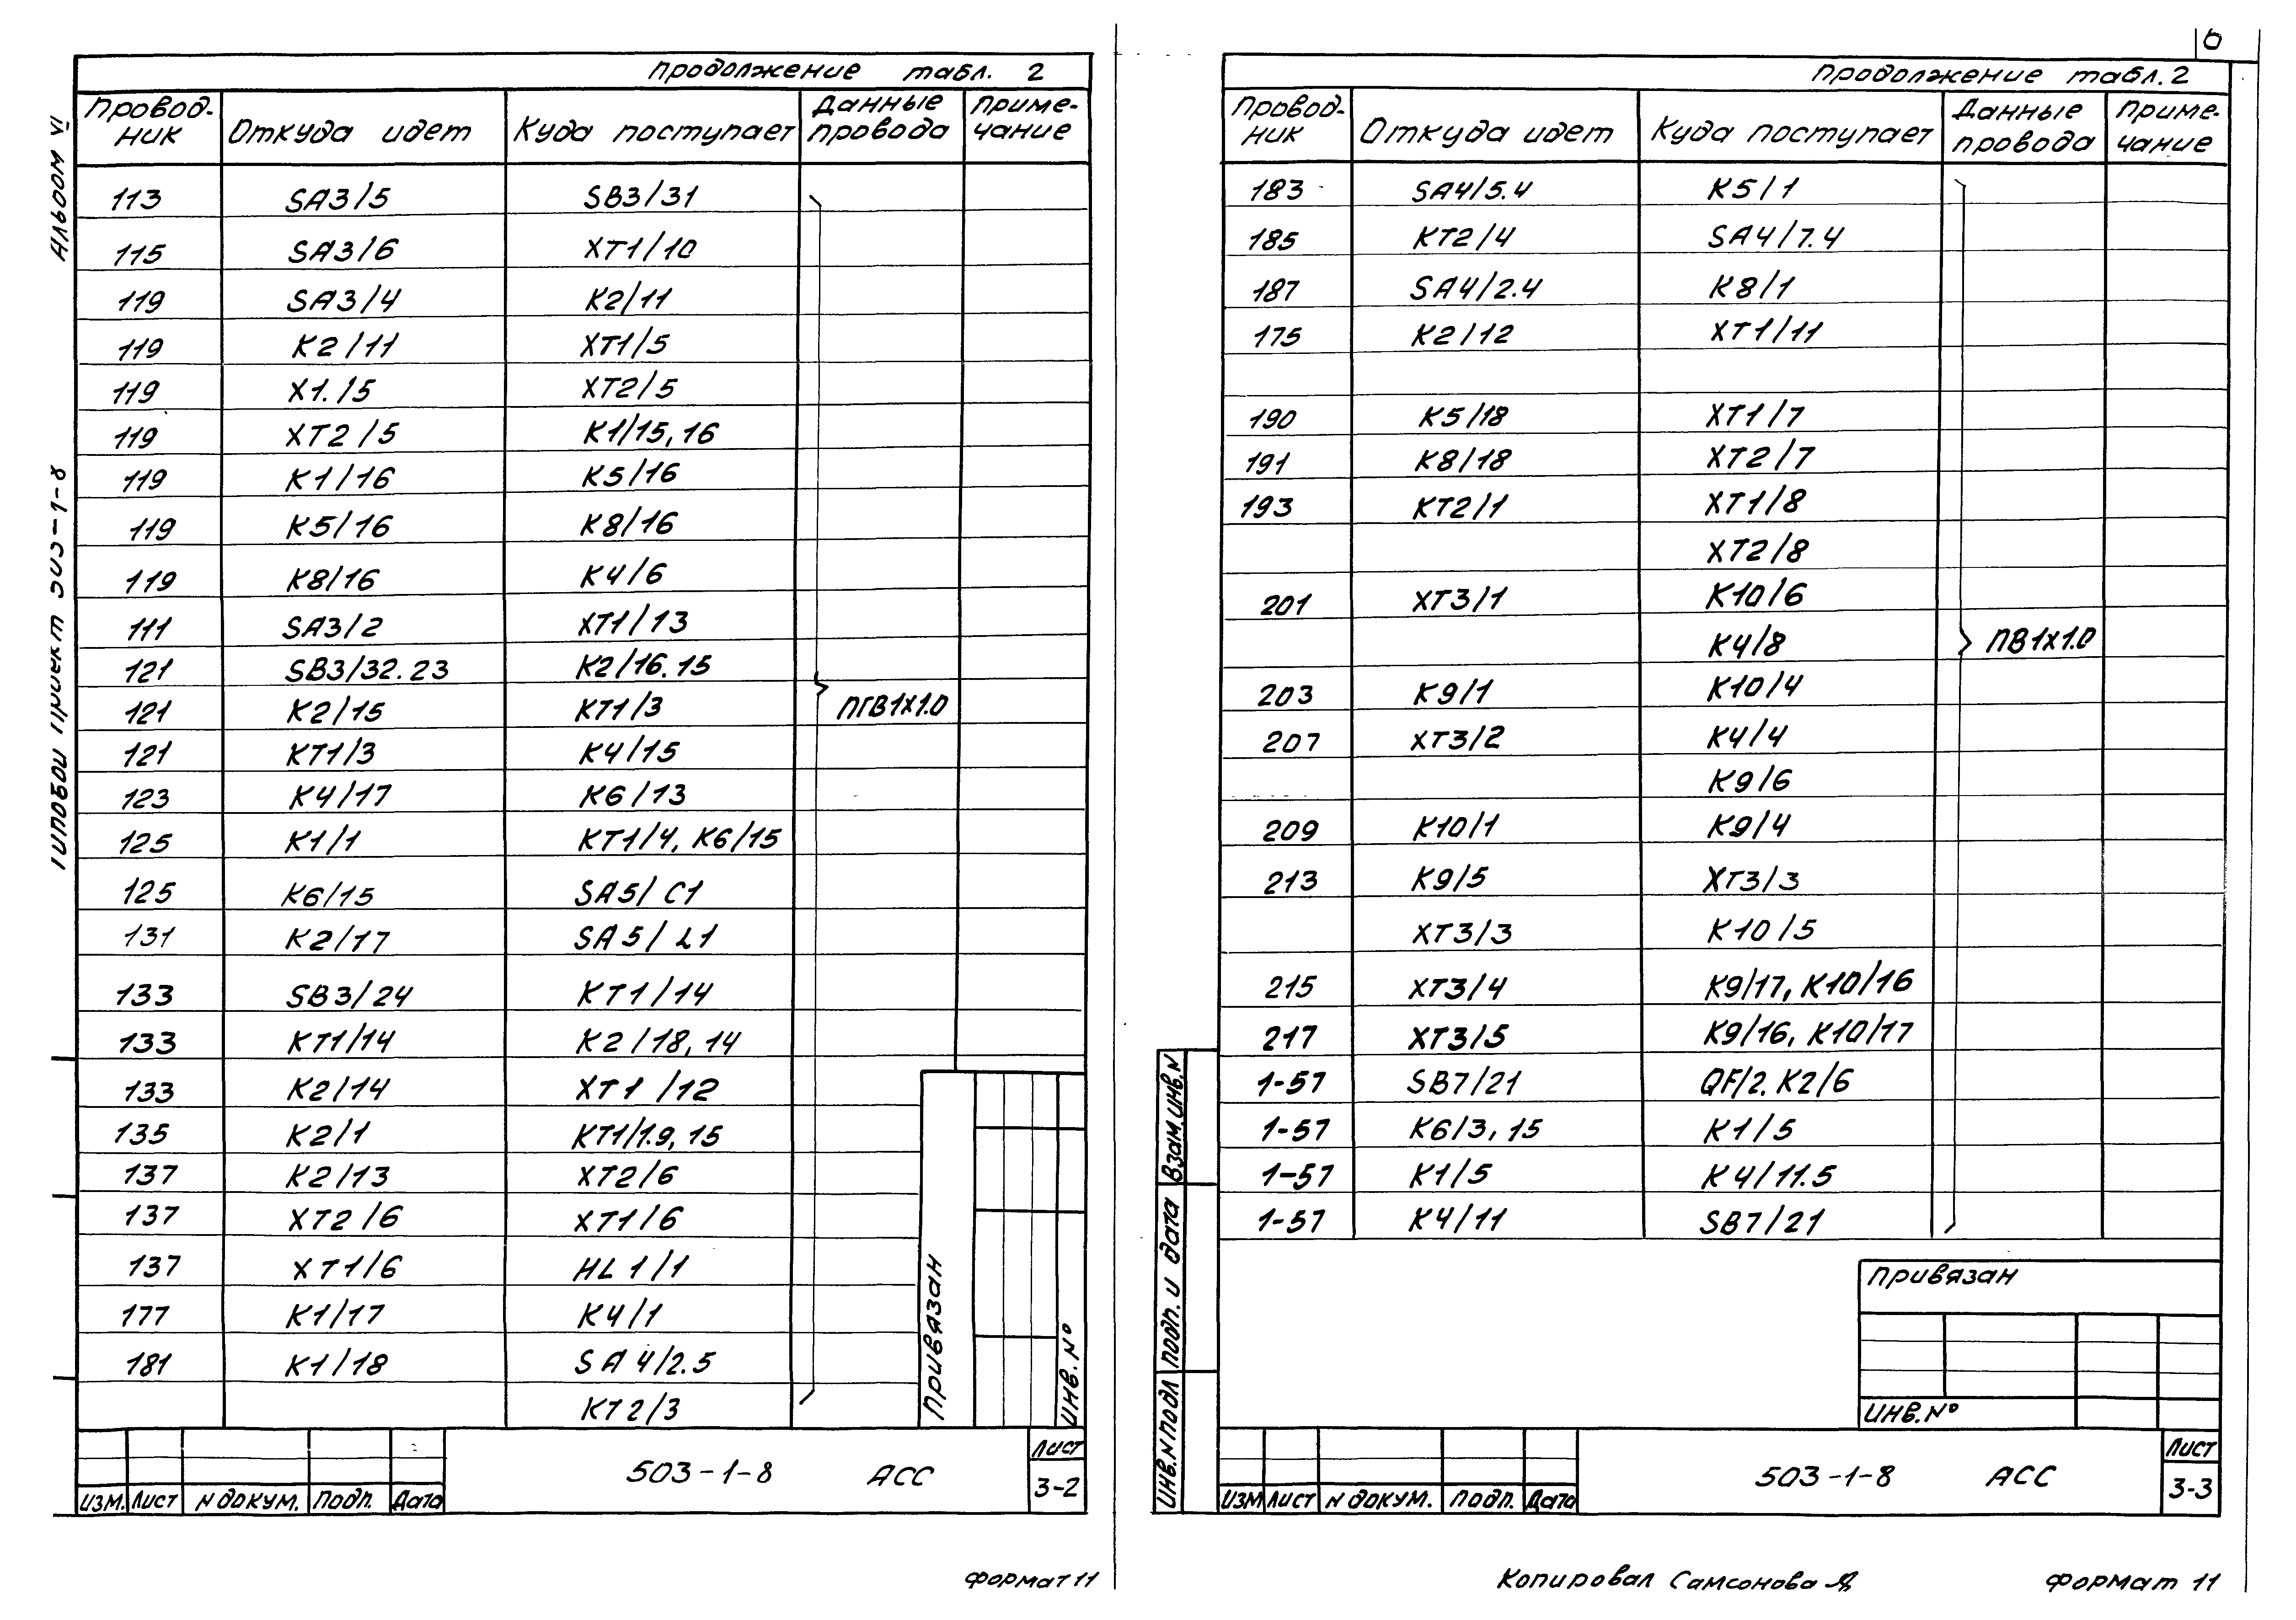 6
Альбом VI
Типовой проект 503-1-8
Продолжение табл. 2
Провод-ник Откуда идет Куда поступает Данные провода Приме-чание
113 SA3/5 SB3/31
115 SA3/6 XT1/10
119 SA3/4 K2/11
119 K2/11 XT1/5
119 X1./5 XT2/5
119 XT2/5 K1/15,16
119 K1/16 K5/16
119 K5/16 K8/16
119 K8/16 K4/6
111 SA3/2 XT1/13
121 SB3/32.23 K2/16.15
121 K2/15 KT1/3 ПГВ1х1.0
121 KT1/3 K4/15
123 K4/17 K6/13
125 K1/1 KT1/4, K6/15
125 K6/15 SA5/C1
131 K2/17 SA5/L1
133 SB3/24 KT1/14
133 KT1/14 K2/18,14
133 K2/14 XT1/12
135 K2/1 KT1/1.9, 15
137 K2/13 XT2/6
137 XT2/6 XT1/6
137 XT1/6 HL1/1
177 K1/17 K4/1
181 K1/18 SA4/2.5
KT2/3
Привязан
Инв. №
Изм. Лист N докум. Подп. Дата
503-1-8 АСС
Лист
3-2
Формат 11
Продолжение табл. 2
Провод-ник Откуда идет Куда поступает Данные провода Приме-чание
183 SA4/5.4 K5/1
185 KT2/4 SA4/7.4
187 SA4/2.4 K8/1
175 K2/12 XT1/11
190 K5/18 XT1/7
191 K8/18 XT2/7
193 KT2/1 XT1/8
XT2/8
201 XT3/1 K10/6
K4/8 ПВ1х1.0
203 K9/1 K10/4
207 XT3/2 K4/4
K9/6
209 K10/1 K9/4
213 K9/5 XT3/3
XT3/3 K10/5
215 XT3/4 K9/17, K10/16
217 XT3/5 K9/16, K10/17
1-57 SB7/21 QF/2. K2/6
1-57 K6/3,15 K1/5
1-57 K1/5 K4/11.5
1-57 K4/11 SB7/21
Взам.инв.N
Подп. и дата
Инв.N подл
Привязан
Инв.№
Изм Лист N докум. Подп. Дата
503-1-8 АСС
Лист
3-3
Копировал Самсонова
Формат 11